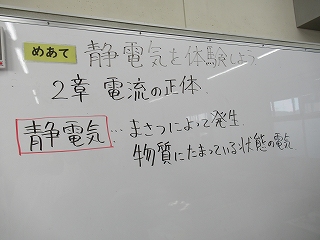 めあて 静電気を体験しよう
2章 電流の正体.
静電気 … まさつによって発生.
物質にたまっている状態の電気